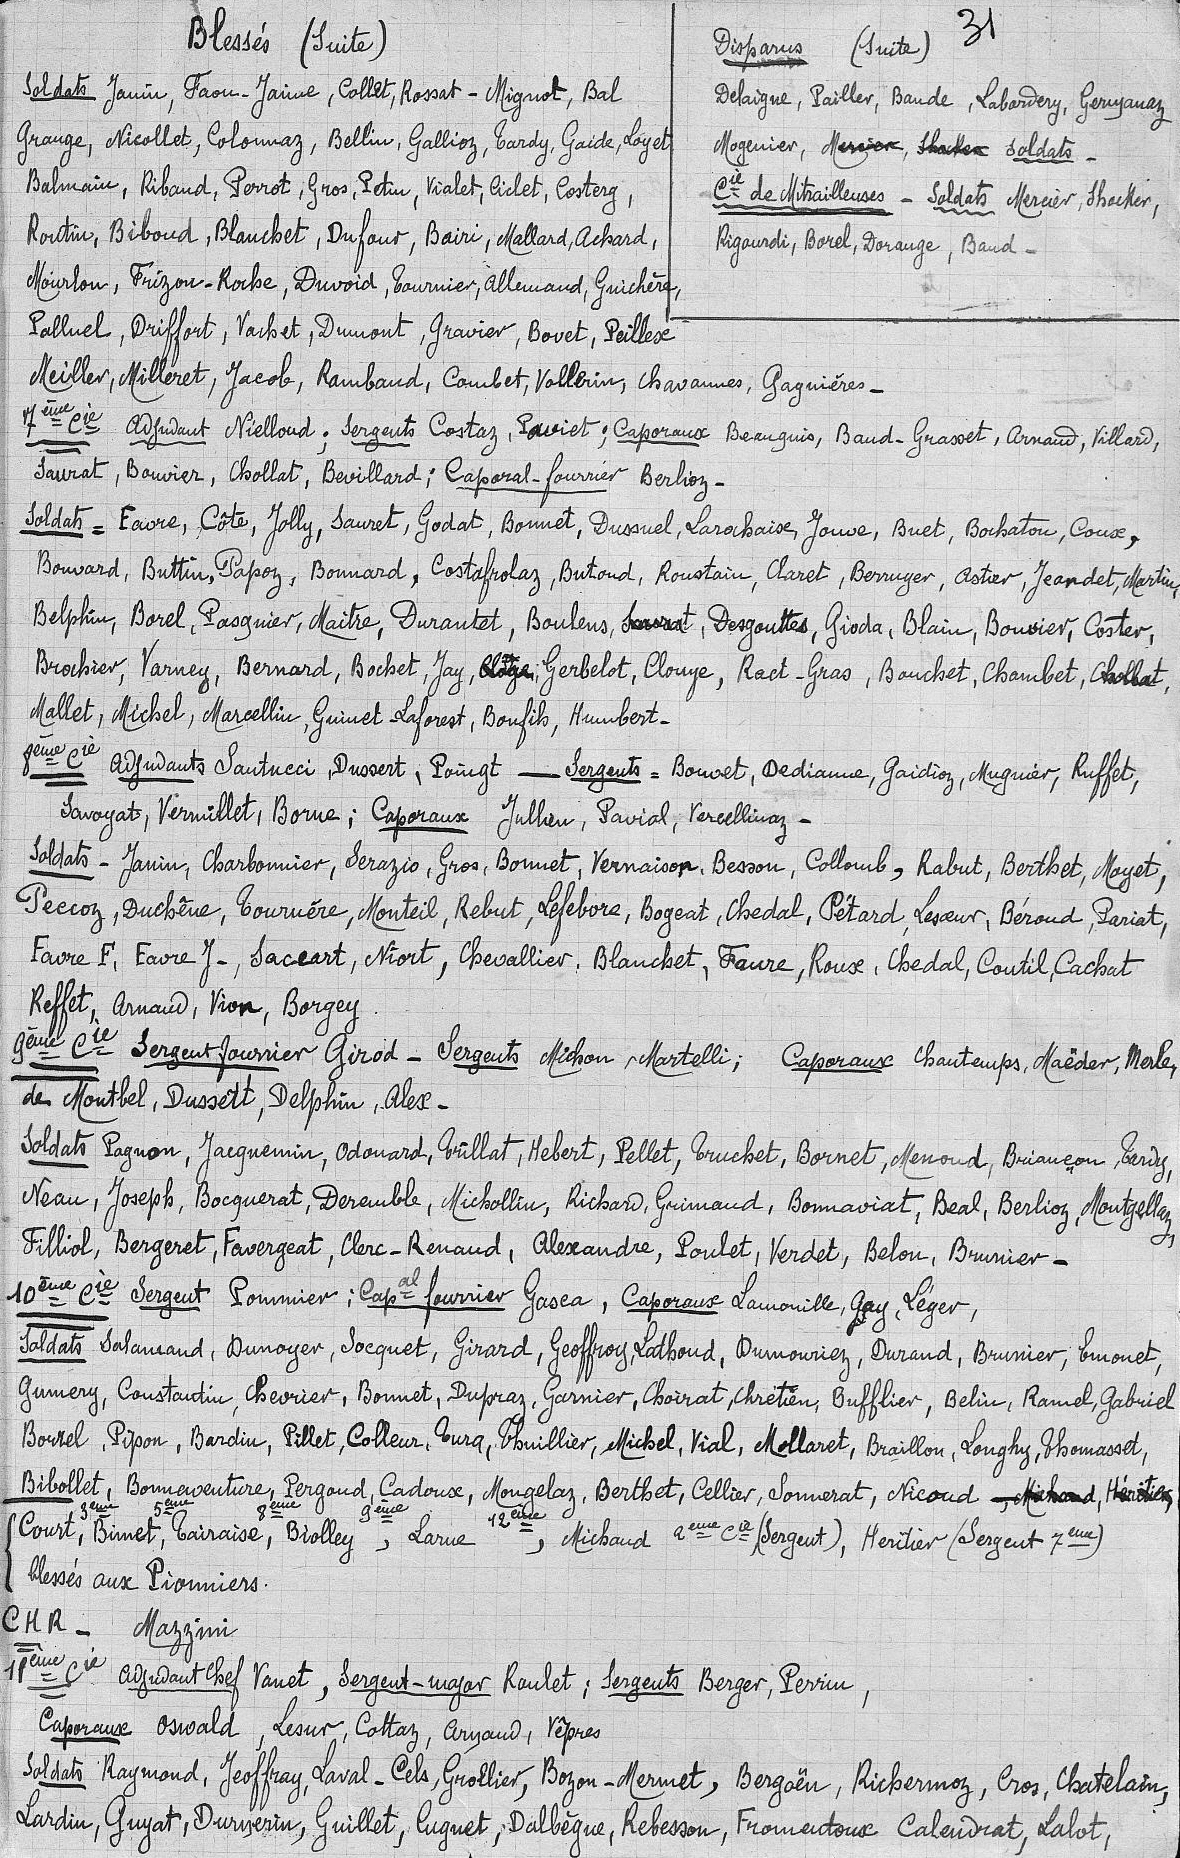 Blessés (Suite)
Soldats Janin, Faou-Jaime, Collet, Rossat-Mignot, Bal
Grange, Nicollet, Colonnaz, Bellin, Gallioz, Tardy, Gaide, Loyet
Balmain, Ribaud, Perrot, Gros, Petin, Vialet, Ciclet, Costerg,
Routin, Biboud, Blanchet, Dufour, Bairi, Mallard, Achard,
Mourlon, Frizon-Roche, Duvoid, Tournier, Allemand, Guichère,
Palluel, Driffort, Vachet, Dumont, Gravier, Bovet, Peillex
Meiller, Milleret, Jacob, Rambaud, Combet, Vollerin, Chavannes, Gagnières -
31
Disparus (Suite)
Delaigne, Pailler, Bande, Labordery, Geruyanaz
Mogenier, Mercier, Shocker soldats -
Cie de Mitrailleuses - Soldats Mercier, Shocker,
Rigourdi, Borel, Dorange, Baud -
7ème Cie Adjudant Nielloud ; Sergents Costaz, Paviet ; Caporaux Beauquis, Baud-Grasset, Arnaud, Villard,
Saurat, Bouvier, Chollat, Bevillard ; Caporal-fourrier Berlioz -
Soldats = Favre, Côte, Jolly, Sauret, Godat, Bonnet, Dussuel, Larochaise, Jouve, Buet, Bochaton, Coux,
Bouvard, Buttin, Papoz, Bonnard, Costafrolaz, Butoud, Roustain, Claret, Berruyer, Astier, Jeandet, Martin,
Belphin, Borel, Pasquier, Maitre, Durantet, Boulens, Saurat, Desgouttes, Gioda, Blain, Bouvier, Coster,
Brochier, Varney, Bernard, Bochet, Jay, Gerbelot, Clouye, Ract-Gras, Bouchet, Chambet, Chollat,
Mallet, Michel, Marcellin, Guinet-Laforest, Boufils, Humbert -
8ème Cie Adjudants Santucci, Dussert, Poingt — Sergents = Bouvet, Dedianne, Gaidioz, Mugnier, Ruffet,
Savoyat, Vermillet, Borne ; Caporaux Jullien, Pavial, Vercellinaz -
Soldats - Janin, Charbonnier, Serazio, Gros, Bonnet, Vernaison, Besson, Collomb, Rabut, Berthet, Moyet,
Peccoz, Duchêne, Tournère, Monteil, Rebut, Lefebvre, Bogeat, Chedal, Pétard, Lesœur, Béroud, Pariat,
Favre F, Favre J-, Saccart, Niort, Chevallier, Blanchet, Faure, Roux, Chedal, Coutil, Cachat
Reffet, Arnaud, Vion, Borgey
9ème Cie Sergent fourrier Girod - Sergents Michon, Martelli ; Caporaux Chautemps, Maëder, Merle,
de Montbel, Dussétt, Delphin, Alex -
Soldats Pagnon, Jacquemin, Odouard, Tullat, Hebert, Pellet, Truchet, Bornet, Menoud, Briançon, Tardy,
Neau, Joseph, Bocquerat, Deremble, Michollin, Richard, Guimaud, Bonnaviat, Beal, Berlioz, Montgellaz,
Filliol, Bergeret, Favergeat, Clerc-Renaud, Alexandre, Poulet, Verdet, Belou, Brunier -
10ème Cie Sergent Pommier ; Capal fourrier Gasca, Caporaux Lamouille, Gay, Léger,
Soldats Salamand, Dunoyer, Socquet, Girard, Geoffroy, Lathoud, Dumouriez, Durand, Brunier, Emonet,
Gumery, Constantin, Chevrier, Bonnet, Dupraz, Garnier, Choirat, Chrétien, Bufflier, Belin, Ramel, Gabriel
Bouzel, Pipon, Bardin, Pillet, Colleur, Turq, Thuillier, Michel, Vial, Mollaret, Braillon, Longhy, Thomasset,
Bibollet, Bonnaventure, Pergoud, Cadoux, Mongelaz, Berthet, Cellier, Sonnerat, Nicoud -, Michaud, Héritier,
Court, 3ème Bimet, 5ème Tairaise, 8ème Biolley, 9ème Larue 12ème, Michaud 2ème Cie (Sergent), Heritier (Sergent 7ème)
blessés aux Pionniers.
CHR - Mazzini
11ème Cie Adjudant Chef Vanet, Sergent-major Roulet ; Sergents Berger, Perrin,
Caporaux Oswald, Lesur, Cottaz, Arnaud, Vêpres
Soldats Raymond, Jeoffray, Laval-Cels, Grollier, Bozon-Mermet, Bergoën, Richermoz, Cros, Chatelain,
Lardin, Guyat, Durwerin, Guillet, Cugnet, Dalbègue, Rebesson, Fromentoux Calendrat, Lalot,